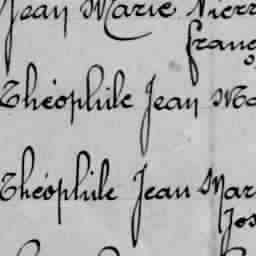 Jean Marie Pierr
franc
Théophile Jean Ma
Théophile Jean Mar
Jos